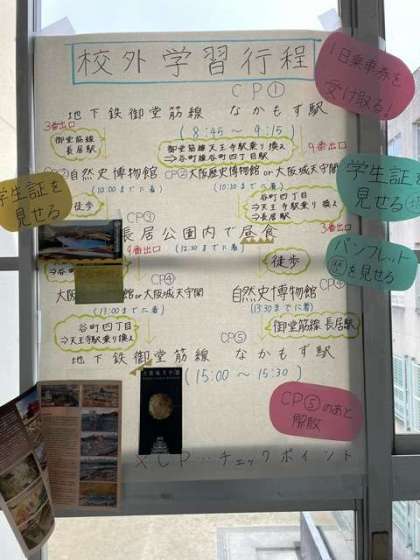 校外学習行程
1日乗車券を
受け取る!
CP①
地下鉄御堂筋線 なかもず駅
(8:45〜9:15)
3番出口
御堂筋線
長居駅
御堂筋線天王寺駅乗り換え
⇒谷町線谷町四丁目駅
9番出口
自然史博物館
(10:00までに着)
CP②大阪歴史博物館or大阪城天守閣
学生証を
見せる
徒歩
谷町四丁目
⇒天王寺駅乗り換え
⇒長居駅
学生証を
見せる
CP③
長居公園内で昼食
3番出口
9番出口
徒歩
パンフレット
を見せる
CP④
or大阪城天守閣
自然史博物館
谷町四丁目
⇒天王寺駅乗り換え
御堂筋線 長居駅
CP⑤
地下鉄御堂筋線 なかもず駅
(15:00〜15:30)
CP⑤のあと
解散
※CP…チェックポイント